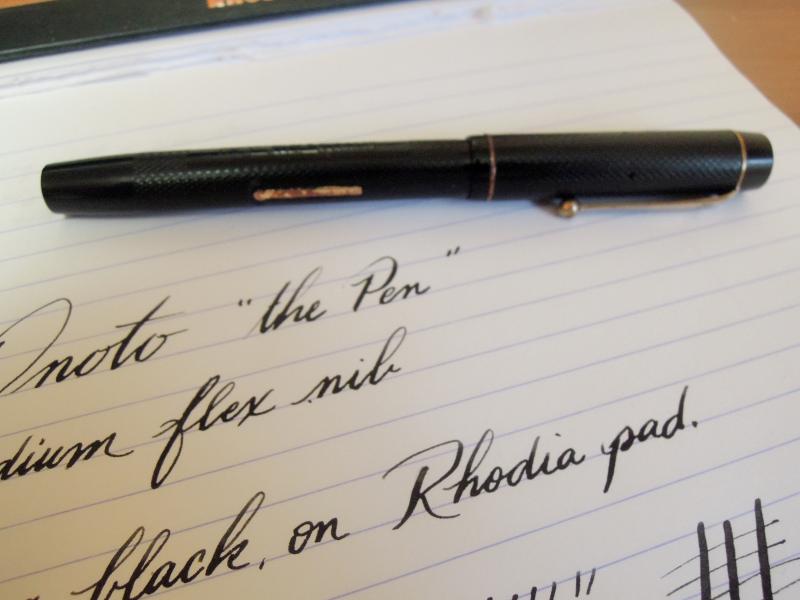 Onoto "the Pen"
dium flex nib
black, on Rhodia pad.